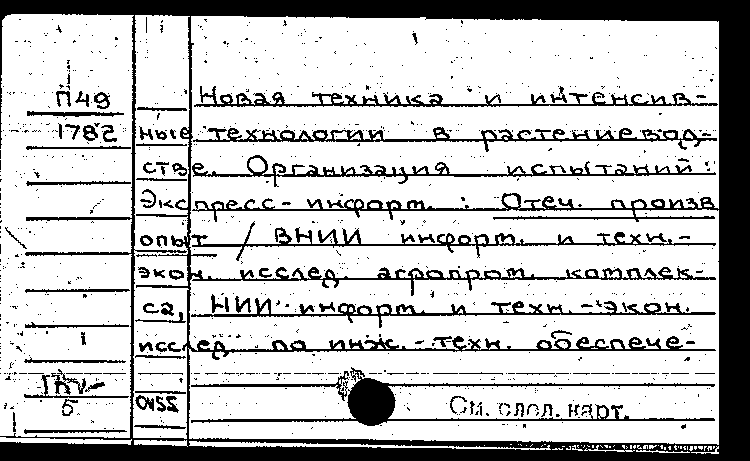 П49
1782
Новая техника и интенсив-
ные технологии в растениевод-
стве. Организация испытаний:
Экспресс-информ. : Отеч. произв
опыт / ВНИИ информ. и техн.-
экон. исслед. агропром. комплек-
са, НИИ информ. и техн.-экон.
исслед. по инж.-техн. обеспече-
5
См. след. карт.